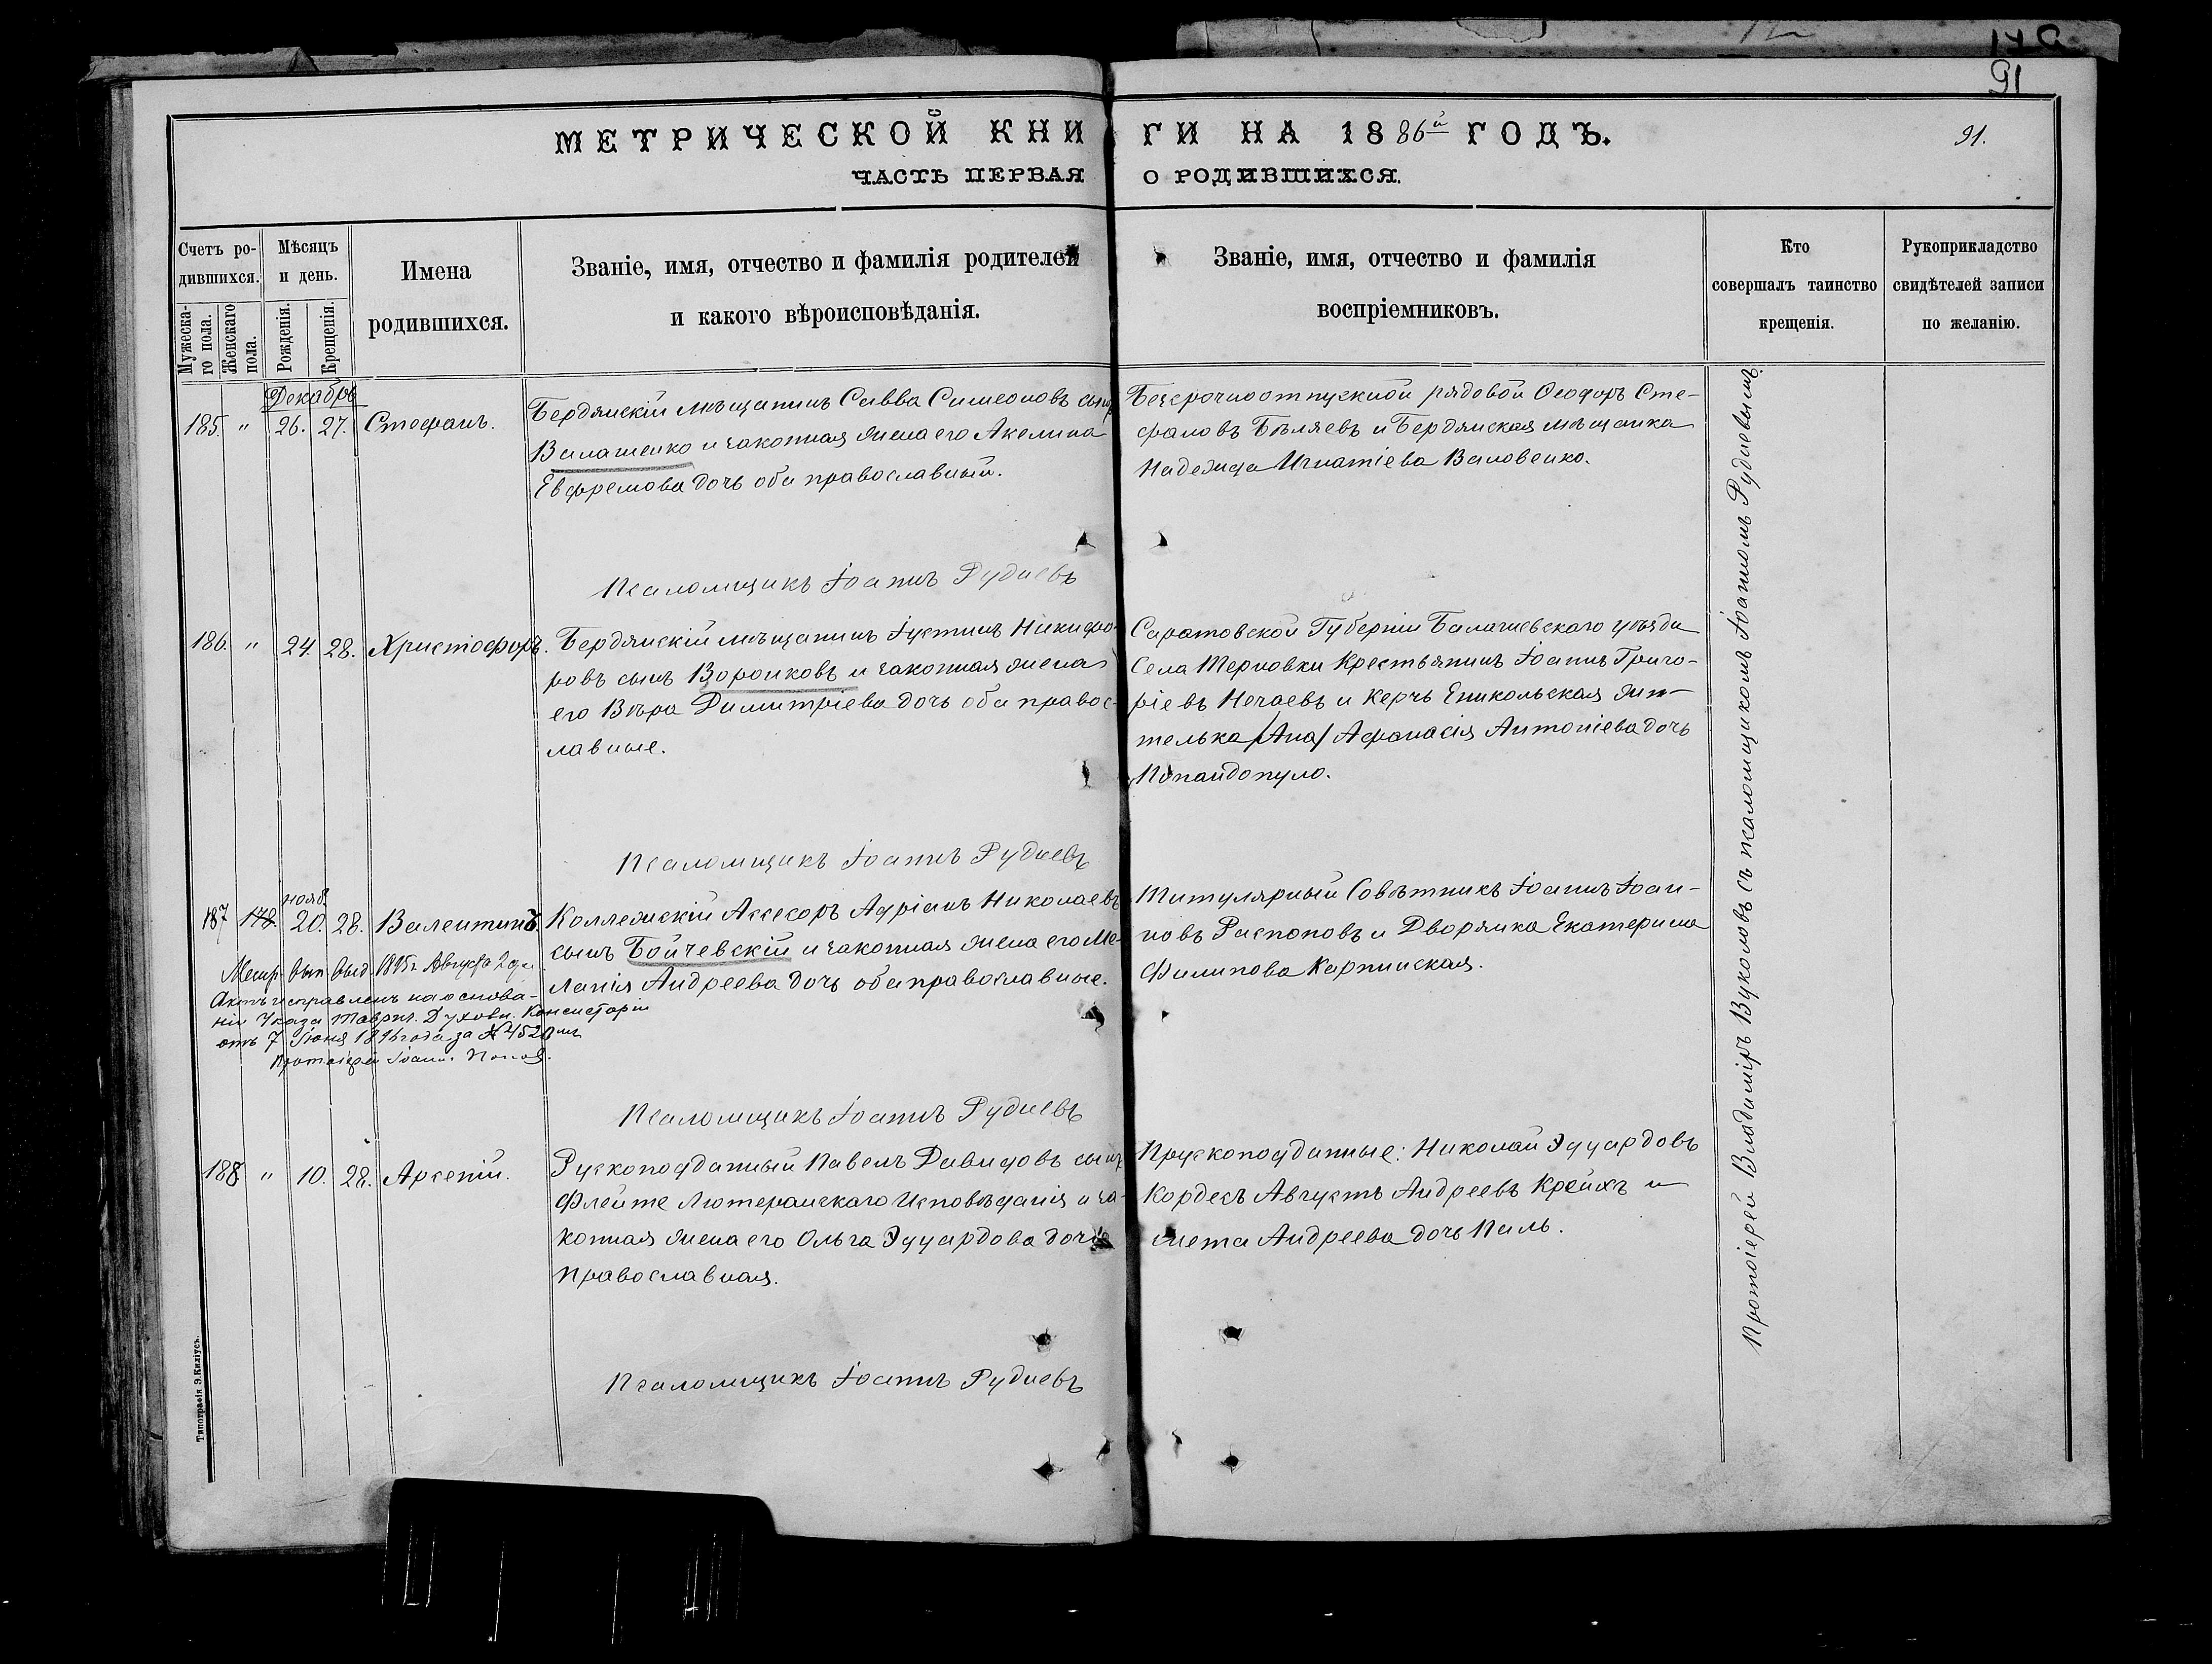 91
МЕТРИЧЕСКОЙ КНИГИ НА 1886й ГОДЪ.
91.
ЧАСТЬ ПЕРВАЯ О РОДИВШИХСЯ.
Счетъ ро-
дившихся.
Мужеска-
го пола.
Женскаго
пола.
Мѣсяцъ
и день.
Рожденія.
Крещенія.
Имена
родившихся.
Званіе, имя, отчество и фамилія родителей
и какого вѣроисповѣданія.
Званіе, имя, отчество и фамилія
воспріемниковъ.
Кто
совершалъ таинство
крещенія.
Рукоприкладство
свидѣтелей записи
по желанію.
Декабрь
185. " 26. 27. Стефанъ.
Бердянскій мѣщанинъ Савва Симеоновъ сынъ
Валашенко и законная жена его Акелина
Евфремова дочь оба православный.
Безсрочноотпускной рядовой Ѳеодоръ Сте-
фановъ Бѣляевъ и Бердянская мѣщанка
Надежда Игнатіева Валовенко.
Псаломщикъ Іоаннъ Рудневъ
186. " 24. 28. Христофоръ.
Бердянскій мѣщанинъ Іустинъ Никифо-
ровъ сынъ Воронковъ и законная жена
его Вѣра Димитріева дочь оба правос-
лавные.
Саратовской Губерніи Балашевскаго уѣзда
Села Терновки Крестьянинъ Іоаннъ Григо-
ріевъ Нечаевъ и Керчь Еникольская жи-
телька /Ана/ Афанасія Антоніева дочь
Попандопуло.
Псаломщикъ Іоаннъ Рудневъ
нояб.
187 178. 20. 28. Валентинъ.
Коллежскій Ассесоръ Адріанъ Николаевъ
сынъ Бойчевскій и законная жена его Ме-
ланія Андреева дочь оба православные.
Титулярный Совѣтникъ Іоаннъ Іоан-
новъ Распоповъ и Дворянка Екатерина
Филипова Карпинская.
Метр. вып. выд. 1895 г. Августа 2 дня
Актъ исправленъ на основа-
ніи Указа Таврич. Духовн. Консисторіи
отъ 7 Іюня 1896 года за № 4520мъ
Протоіерей Іоаннъ
Псаломщикъ Іоаннъ Рудневъ
188 " 10. 28. Арсеній.
Рускоподданный Павелъ Давидовъ сынъ
Флейте Лютеранскаго Исповѣданія и за-
конная жена его Ольга Эдуардова дочь
Православная.
Прускоподданные: Николай Эдуардовъ
Кордесъ Августъ Андреевъ Крейхъ и
мета Андреева дочь Паль.
Псаломщикъ Іоаннъ Рудневъ
Протоіерей Владиміръ Вуколовъ съ псаломщикомъ Іоанномъ Рудневымъ.
Типографія Э. Киліусъ.